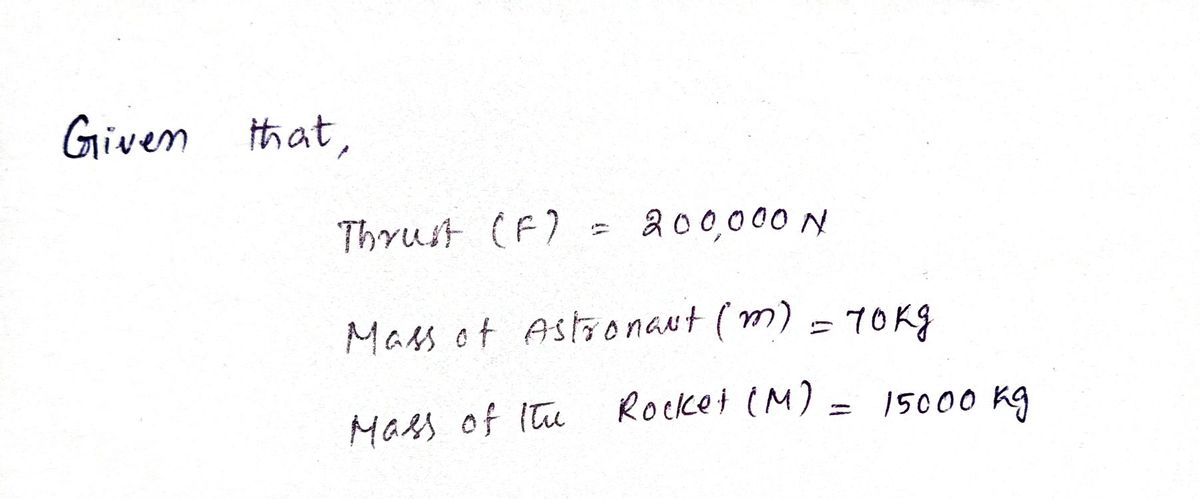 Given that,
Thrust (F) = 200,000 N
Mass of Astronaut (m) = 70 Kg
Mass of the Rocket (M) = 15000 Kg